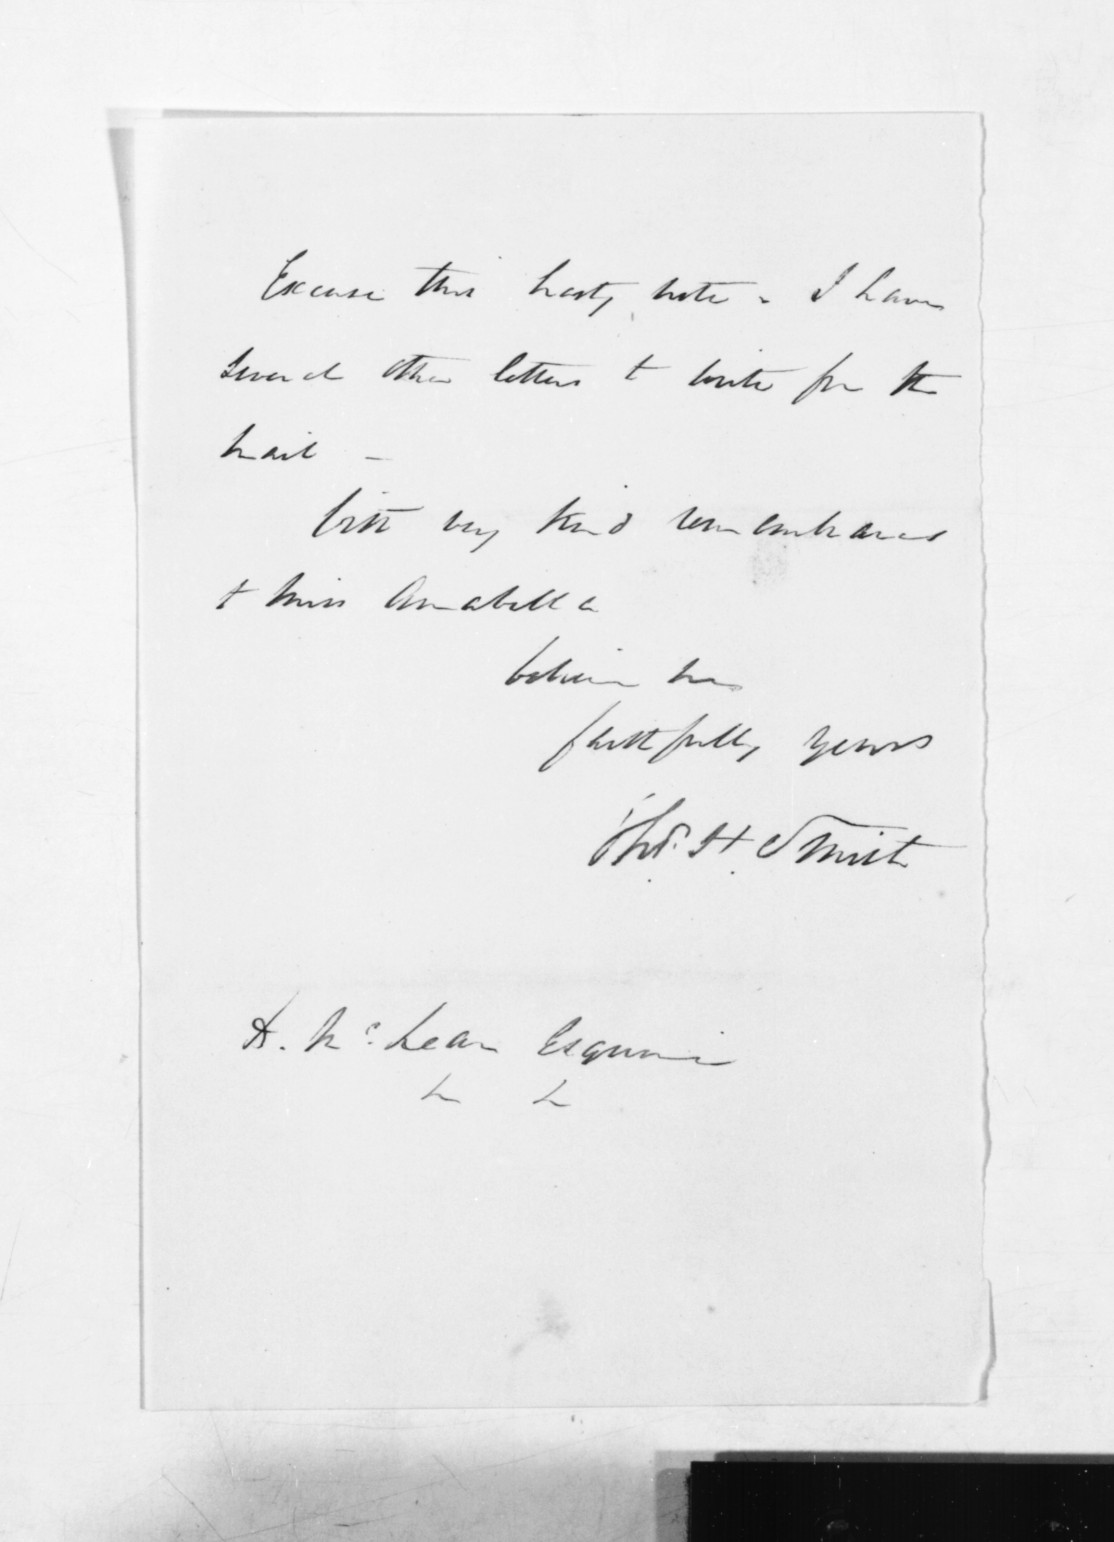 Excuse this hasty note - I have
several other letters to write for the
mail -
With very kind remembrances
to Miss Annabella
believe me
faithfully yours
Thos. H. Smith
A. McLean Esquire